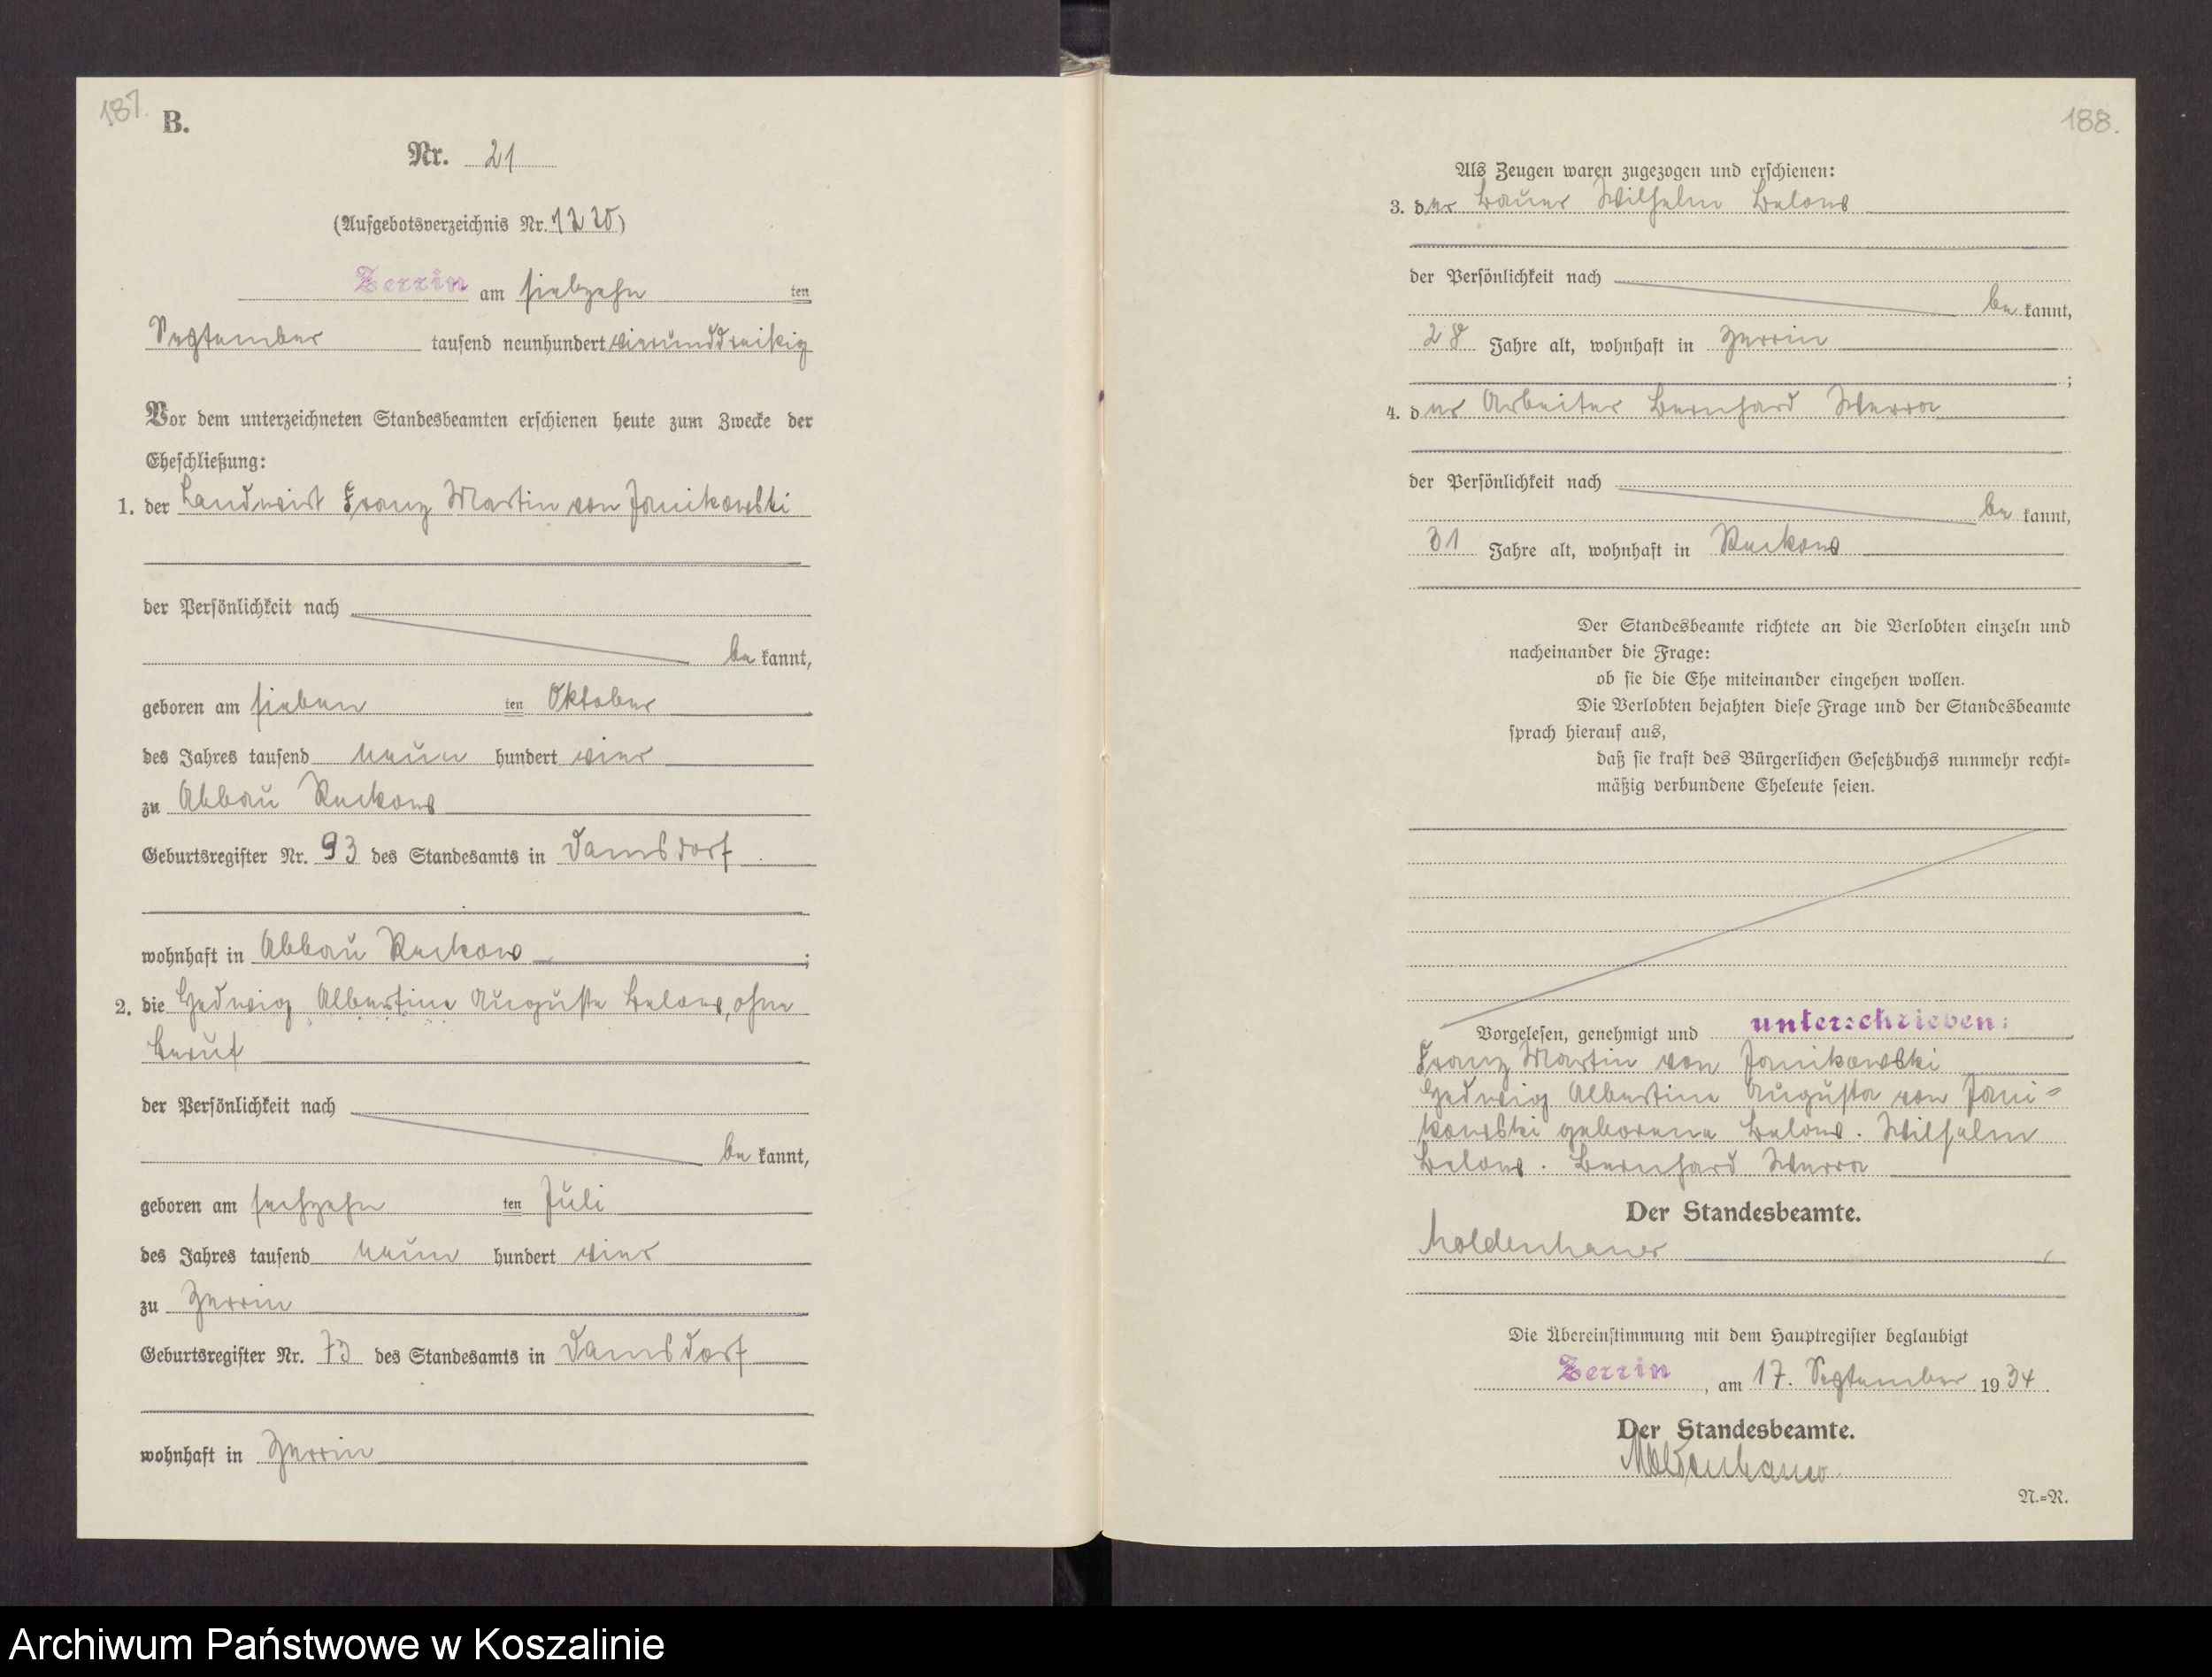 187.
B.
Nr. 21
(Aufgebotsverzeichnis Nr.)
Zerrin am siebzehn ten
September tausend neunhundert vierunddreißig
Vor dem unterzeichneten Standesbeamten erschienen heute zum Zwecke der
Eheschließung:
1. der Landwirt Franz Martin von Janikowski
der Persönlichkeit nach
be kannt,
geboren am sieben ten Oktober
des Jahres tausend neun hundert vier
zu Abbau Reckow
Geburtsregister Nr. 93 des Standesamts in Damsdorf
wohnhaft in Abbau Reckow ;
2. die Hedwig Albertine Auguste Below, ohne
Beruf
der Persönlichkeit nach
be kannt,
geboren am sechzehn ten Juli
des Jahres tausend neun hundert vier
zu Zerrin
Geburtsregister Nr. 73 des Standesamts in Damsdorf
wohnhaft in Zerrin
188.
Als Zeugen waren zugezogen und erschienen:
3. der Bauer Wilhelm Below
der Persönlichkeit nach
be kannt,
28 Jahre alt, wohnhaft in Zerrin
;
4. der Arbeiter Bernhard Werra
der Persönlichkeit nach
be kannt,
31 Jahre alt, wohnhaft in Reckow
Der Standesbeamte richtete an die Verlobten einzeln und
nacheinander die Frage:
ob sie die Ehe miteinander eingehen wollen.
Die Verlobten bejahten diese Frage und der Standesbeamte
sprach hierauf aus,
daß sie kraft des Bürgerlichen Gesetzbuchs nunmehr recht=
mäßig verbundene Eheleute seien.
Vorgelesen, genehmigt und unterschrieben:
Franz Martin von Janikowski
Hedwig Albertine Auguste von Jani=
kowski geborene Below. Wilhelm
Below. Bernhard Werra
Der Standesbeamte.
Moldenhauer
Die Übereinstimmung mit dem Hauptregister beglaubigt
Zerrin, am 17. September 1934
Der Standesbeamte.
Moldenhauer.
N.=R.
Archiwum Państwowe w Koszalinie